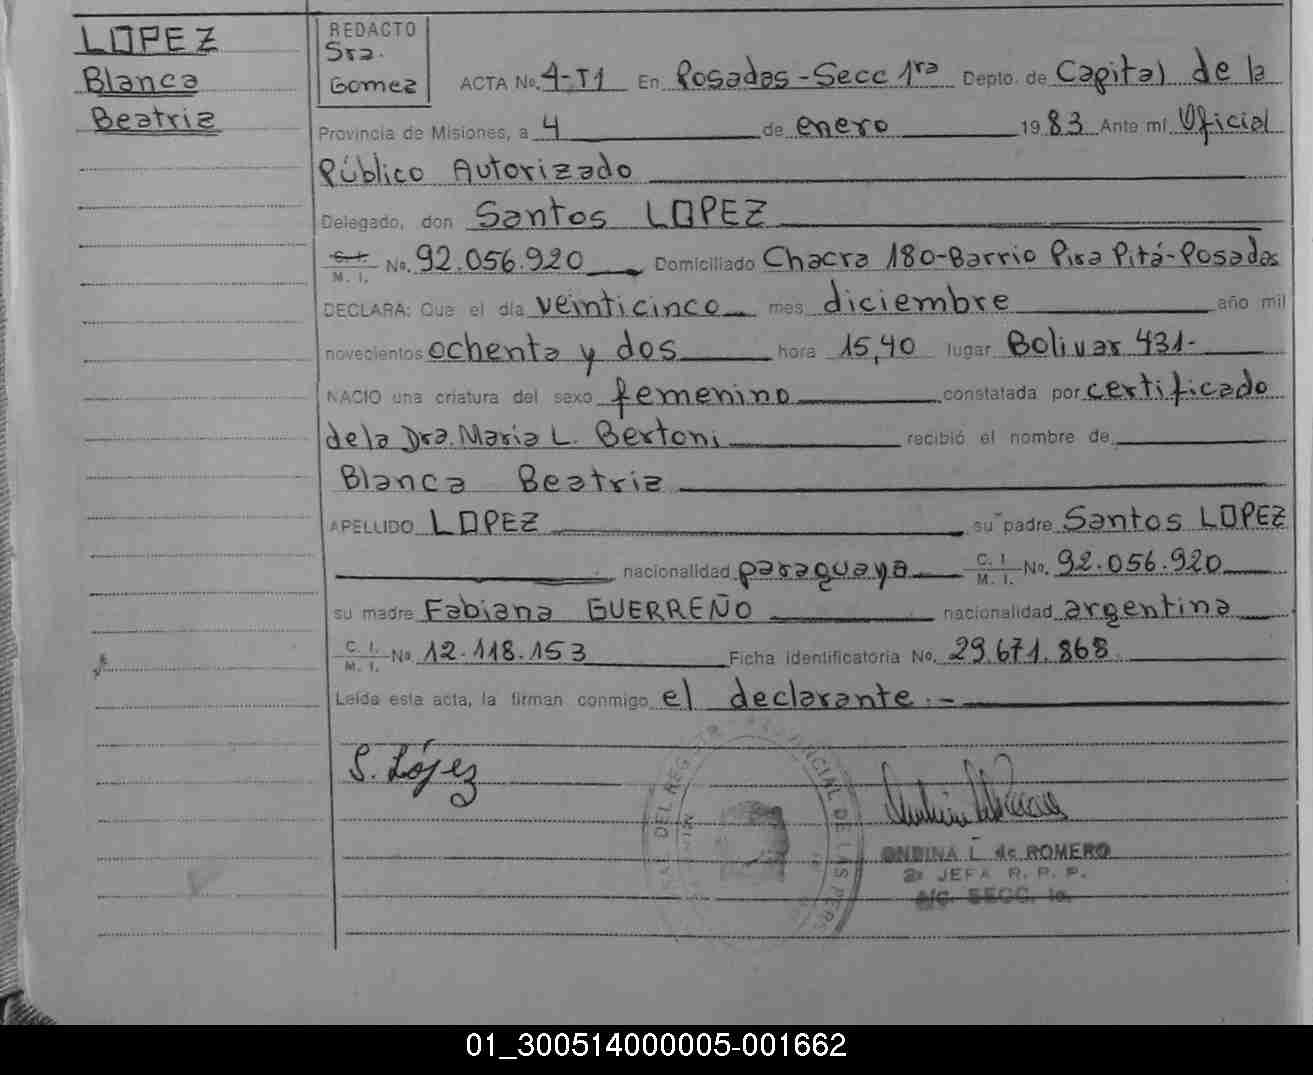 LOPEZ
Blanca
Beatriz
REDACTO
Sra.
Gomez
ACTA No. 4-T1 En Posadas-Secc 1ra Depto. de Capital de la
Provincia de Misiones, a 4 de enero 1983 Ante mí Oficial
Público Autorizado
Delegado, don Santos LOPEZ
C. I. M. I. No. 92.056.920 Domiciliado Chacra 180-Barrio Pira Pitá-Posadas
DECLARA: Que el día veinticinco mes diciembre año mil
novecientos ochenta y dos hora 15,40 lugar Bolivar 431-
NACIO una criatura del sexo femenino constatada por certificado
de la Dra. Maria L. Bertoni recibió el nombre de
Blanca Beatriz
APELLIDO LOPEZ su padre Santos LOPEZ
nacionalidad paraguaya C. I. M. I. No. 92.056.920
su madre Fabiana GUERREÑO nacionalidad argentina
C. I. M. I. No 12.118.153 Ficha identificatoria No. 29.671.868
Leída esta acta, la firman conmigo el declarante.-
S. López
ONDINA L. de ROMERO
2a JEFA R. P. P.
A/C. SECC. 1a.
01_300514000005-001662